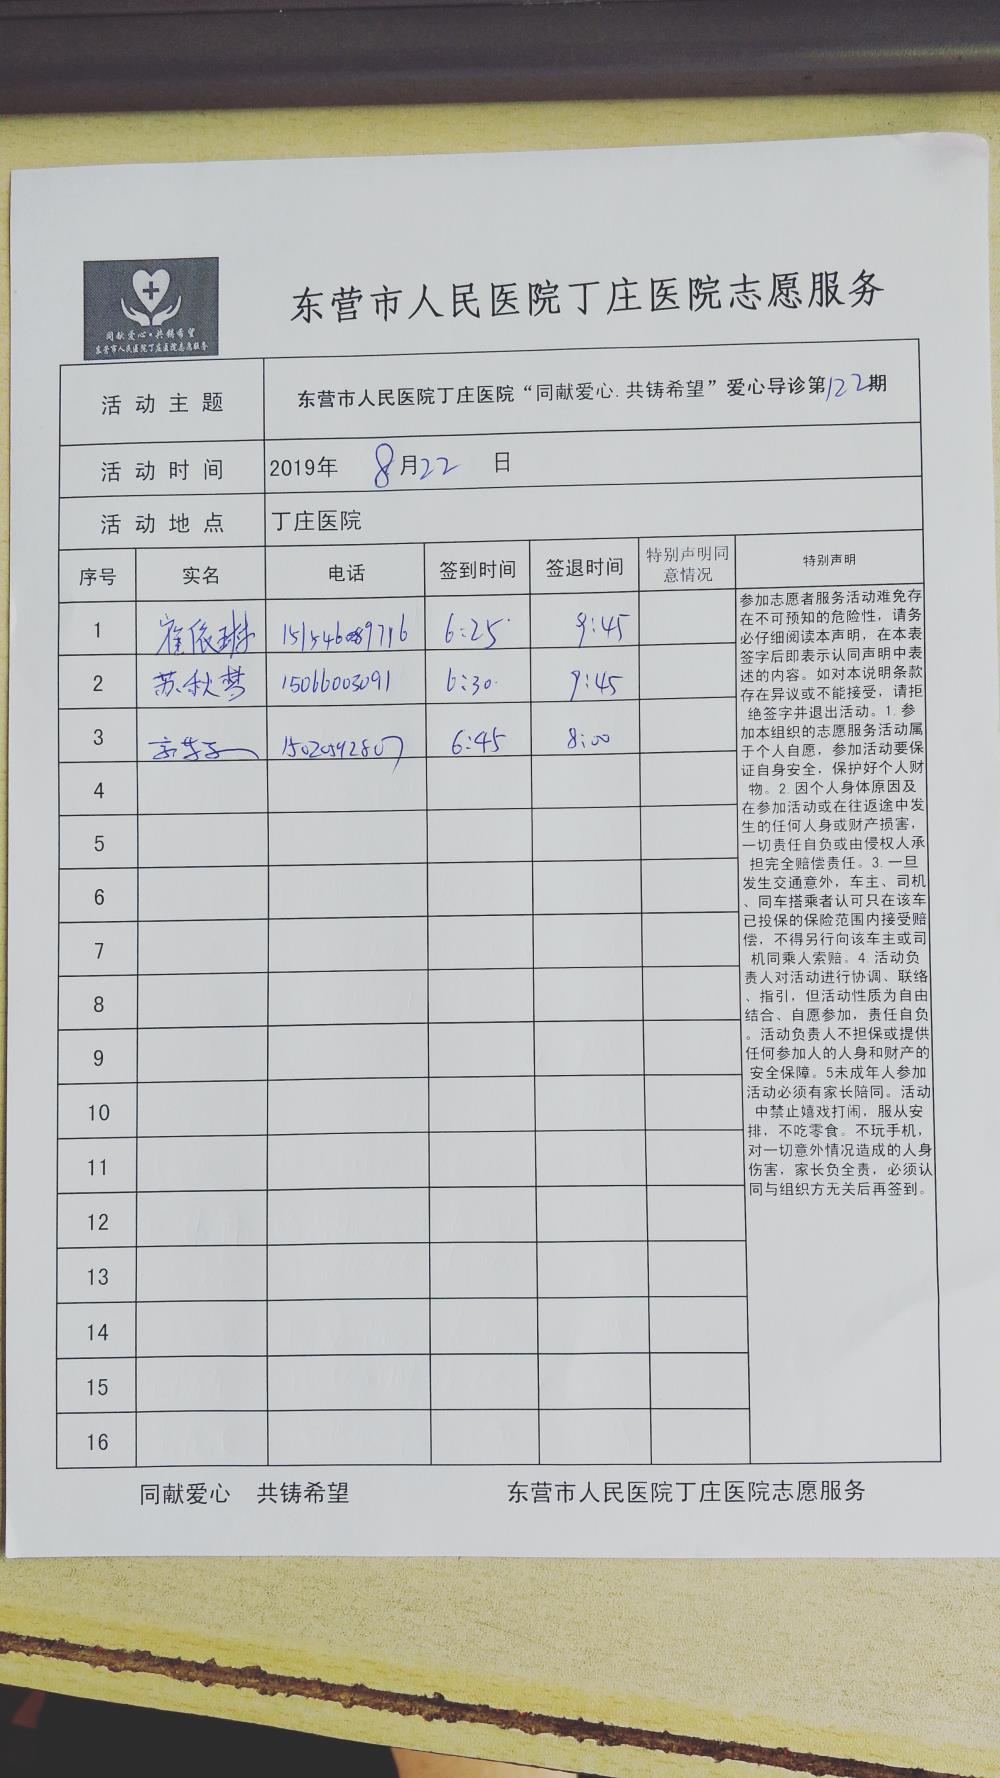 同献爱心·共铸希望
东营市人民医院丁庄医院志愿服务
东营市人民医院丁庄医院志愿服务
活动主题 东营市人民医院丁庄医院“同献爱心.共铸希望”爱心导诊第122期
活动时间 2019年 8月22 日
活动地点 丁庄医院
序号 实名 电话 签到时间 签退时间 特别声明同意情况 特别声明
1 崔依琳 6:25 9:45
2 苏秋梦 15066003091 6:30 9:45
3 6:45 8:00
4
5
6
7
8
9
10
11
12
13
14
15
16
参加志愿者服务活动难免存
在不可预知的危险性，请务
必仔细阅读本声明，在本表
签字后即表示认同声明中表
述的内容。如对本说明条款
存在异议或不能接受，请拒
绝签字并退出活动。1.参
加本组织的志愿服务活动属
于个人自愿，参加活动要保
证自身安全，保护好个人财
物。2.因个人身体原因及
在参加活动或在往返途中发
生的任何人身或财产损害，
一切责任自负或由侵权人承
担完全赔偿责任。3.一旦
发生交通意外，车主、司机
、同车搭乘者认可只在该车
已投保的保险范围内接受赔
偿，不得另行向该车主或司
机同乘人索赔。4.活动负
责人对活动进行协调、联络
、指引，但活动性质为自由
结合、自愿参加，责任自负
。活动负责人不担保或提供
任何参加人的人身和财产的
安全保障。5未成年人参加
活动必须有家长陪同。活动
中禁止嬉戏打闹，服从安
排，不吃零食。不玩手机，
对一切意外情况造成的人身
伤害，家长负全责，必须认
同与组织方无关后再签到。
同献爱心 共铸希望 东营市人民医院丁庄医院志愿服务